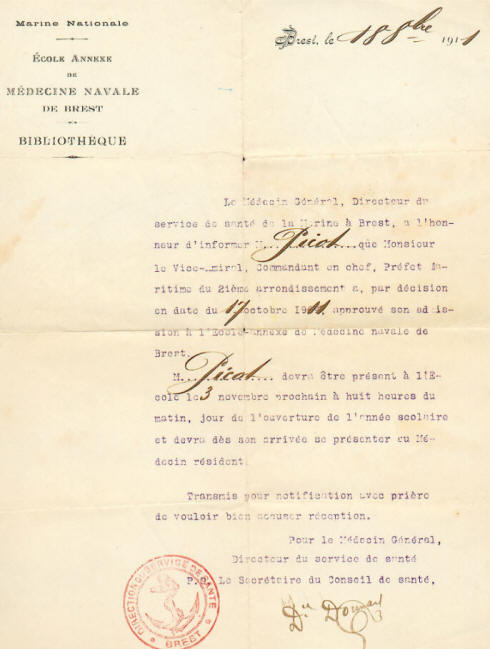 Marine Nationale
École Annexe
DE
MÉDECINE NAVALE
DE BREST
BIBLIOTHÈQUE
Brest, le 18 8bre 1911
Le Médecin Général, Directeur du
service de santé de la Marine à Brest, a l'hon-
neur d'informer M...Picat...que Monsieur
le Vice-amiral, Commandant en chef, Préfet Ma-
ritime du 2ième arrondissement a, par décision
en date du 17 octobre 1911 approuvé son admis-
sion à l'Ecole-annexe de Médecine navale de
Brest.
M...Picat.... devra être présent à l'E-
cole le 3 novembre prochain à huit heures du
matin, jour de l'ouverture de l'année scolaire
et devra dès son arrivée se présenter au Mé-
decin résident.
Transmis pour notification avec prière
de vouloir bien accuser réception.
Pour le Médecin Général,
Directeur du service de santé
Le Secrétaire du Conseil de santé,
Dr
DIRECTION DU SERVICE DE SANTE
BREST